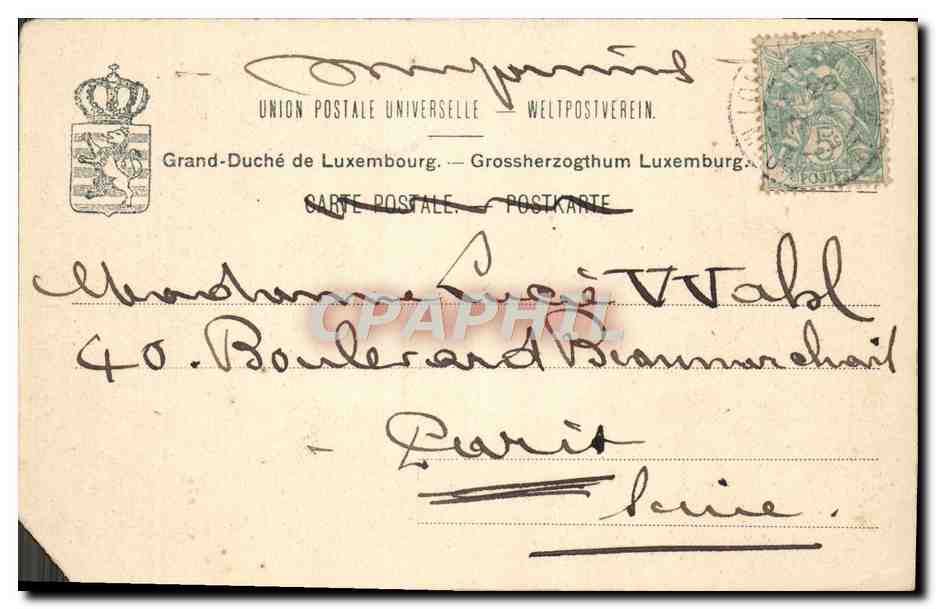 Imprimés
UNION POSTALE UNIVERSELLE — WELTPOSTVEREIN.
Grand-Duché de Luxembourg. — Grossherzogthum Luxemburg.
CARTE POSTALE. — POSTKARTE
Madame Lucie Wahl
CPAPHIL
40. Boulevard Beaumarchais
Paris
Seine.
5
POSTES